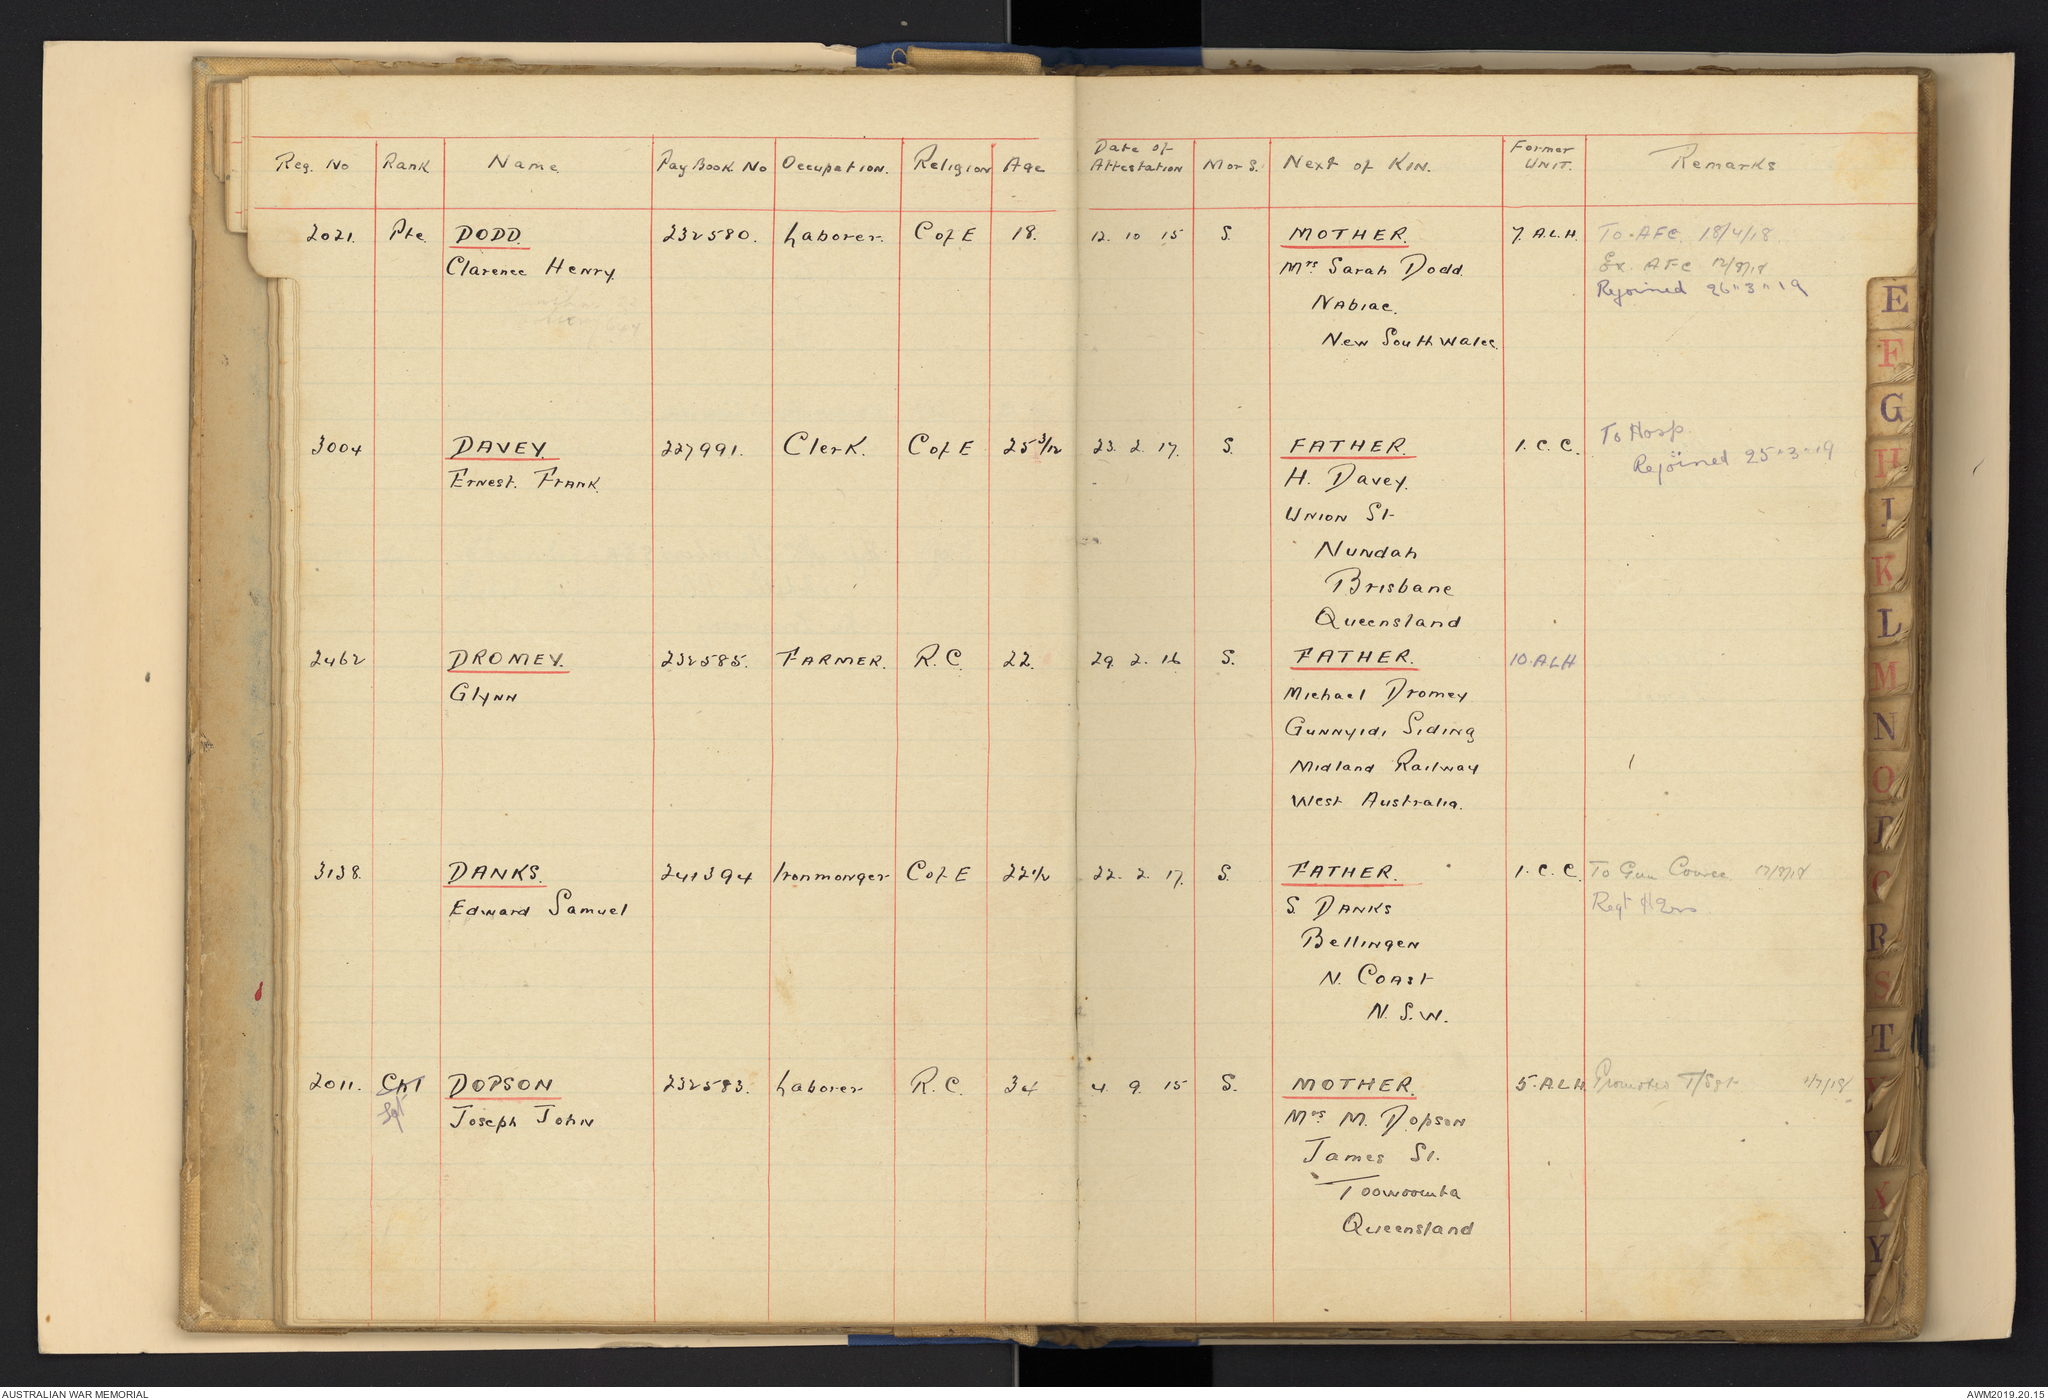 Reg. No Rank Name Pay Book No Occupation. Religion Age Date of Attestation M or S. Next of Kin. Former Unit. Remarks
2021. Pte. DODD. 232580. Laborer. C of E 18. 12. 10 15 S. MOTHER. 7. A.L.H. To AFC 18/4/18
Clarence Henry. Mrs Sarah Dodd. Ex. AFC
Nabiac. Rejoined 26"3"19
New South Wales.
3004 DAVEY. 227991. Clerk. C of E 25 3/12 23. 2. 17. S. FATHER. I. C. C. To Hosp.
Ernest. Frank. H. Davey. Rejoined 25"3"19
Union St
Nundah
Brisbane
Queensland
2462 DROMEY. 232585. FARMER. R.C. 22. 29. 2. 16 S. FATHER. 10. A L H
Glynn Michael Dromey
Gunnyidi Siding
Midland Railway
West Australia.
3138. DANKS. 241394 Ironmonger C of E 22 1/2 22. 2. 17. S. FATHER. I. C. C. To Gun Course
Edward Samuel S. Danks Regt H Qrs
Bellingen
N. Coast
N. S. W.
2011. Cpl DOPSON 232583. Laborer R. C. 34 4. 9. 15 S. MOTHER. 5. A.L.H. Promoted T/Sgt
Sgt Joseph John Mrs M. Dopson
James St.
Toowoomba
Queensland
E
F
G
H
I
K
L
M
N
O
P
Q
R
S
T
X
Y
AUSTRALIAN WAR MEMORIAL AWM2019.20.15